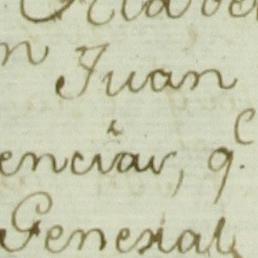 n Juan
enciar, q.e
General